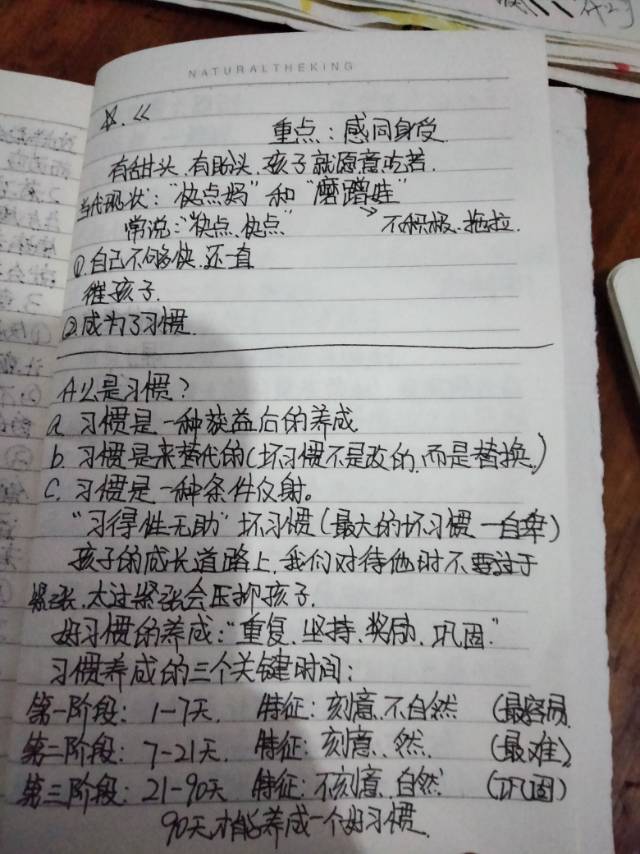 NATURALTHEKING
☆. <<
重点：感同身受
有甜头.有盼头.孩子就愿意吃苦.
当代现状："快点妈"和"磨蹭娃"
常说："快点.快点" → 不积极.拖拉.
①.自己不够快.还一直
催孩子.
②.成为了习惯.
什么是习惯？
a. 习惯是一种获益后的养成
b. 习惯是来替代的(坏习惯不是改的.而是替换.)
C. 习惯是一种条件反射。
"习得性无助"坏习惯(最大的坏习惯—自卑)
孩子的成长道路上.我们对待他时不要过于
紧张.太过紧张会压抑孩子.
好习惯的养成："重复.坚持.奖励.巩固."
习惯养成的三个关键时间：
第一阶段：1-7天. 特征：刻意.不自然 (最容易.
第二阶段：7-21天. 特征：刻意.、然. (最难)
第三阶段：21-90天 特征：不刻意.自然. (巩固)
90天才能养成一个好习惯.